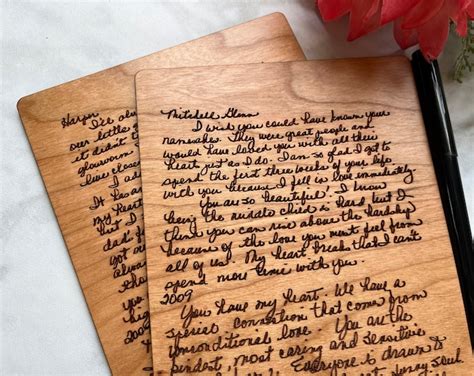 Harper
I'll al
our little
it didn't
glowworm
live close
It has
my hear
that I
dad's
got m
alway
that
you
big
2009
Mitchell Glenn
I wish you could have known your
namesake. They were great people and
would have loved you with all their
heart just as I do. I am so glad I got to
spend the first three weeks of your life
with you because I fell in love immediately.
You are so beautiful! I know
being the middle child is hard but I
think you can rise above the hardship
because of the love you must feel from
all of us. My heart breaks that I can't
spend more time with you.
2009
You have my heart. We have a
special connection that comes from
unconditional love. You are the
kindest, most caring and sensitive
Everyone is drawn to
sunny soul